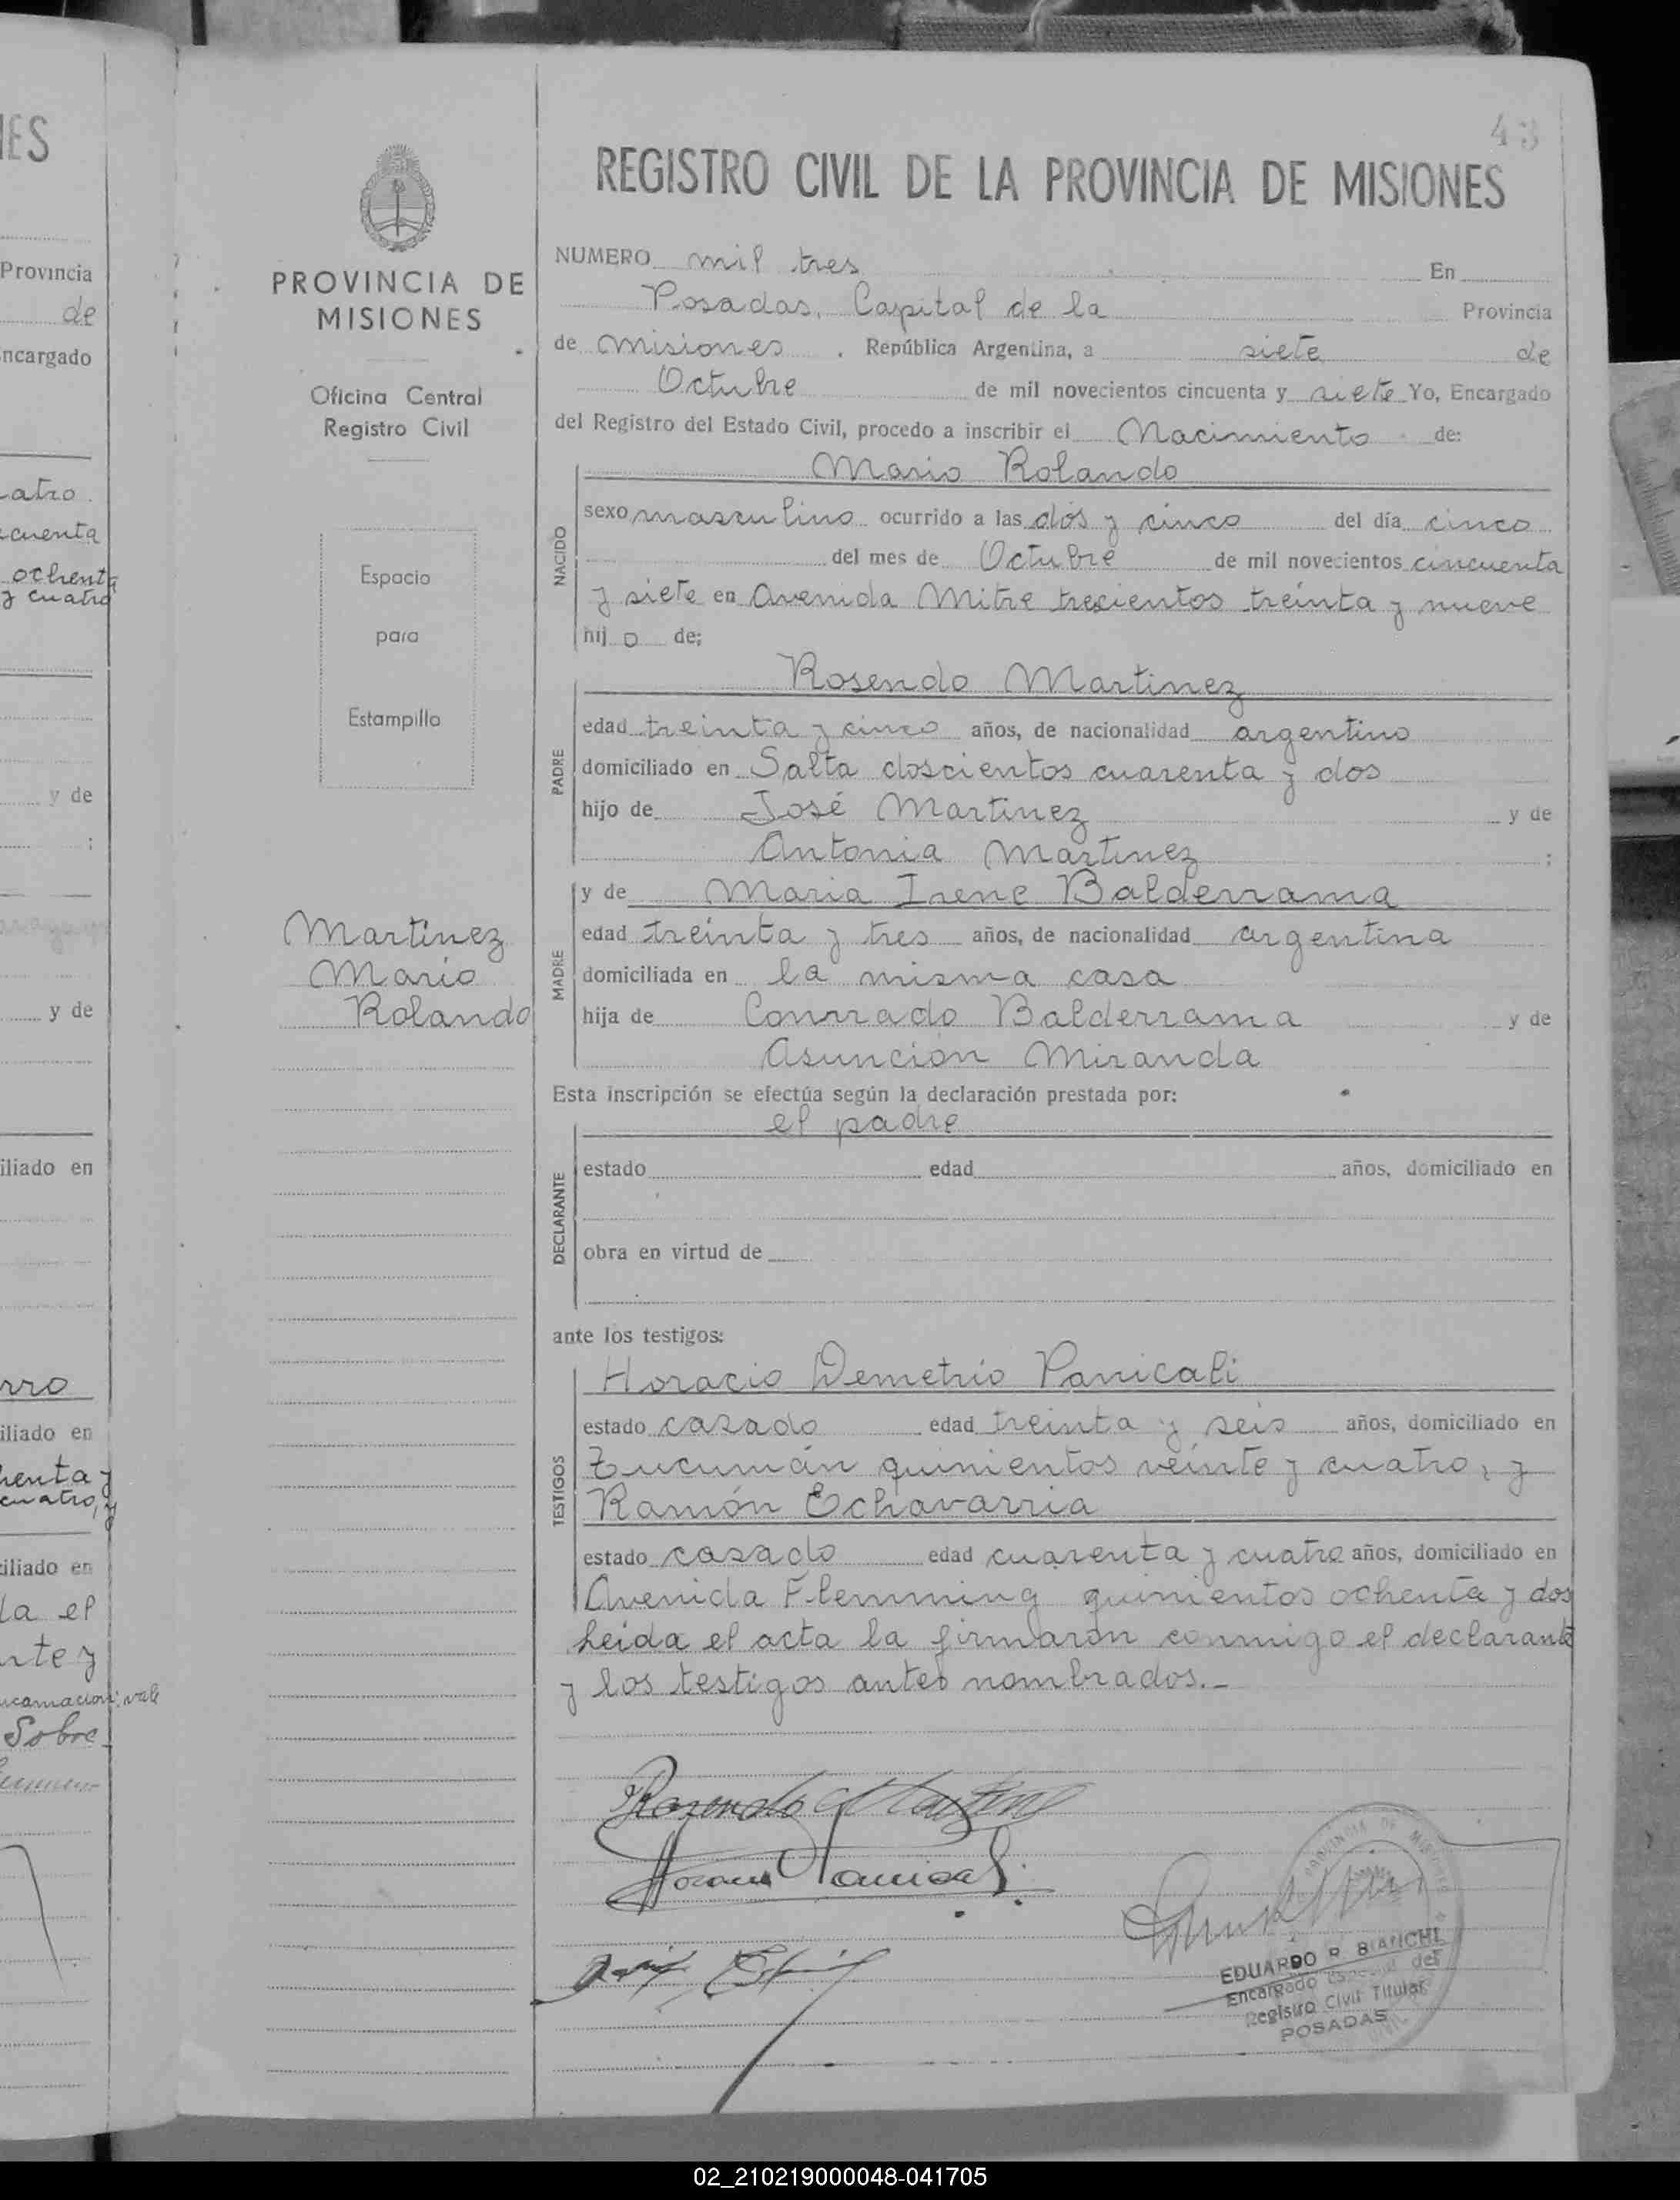 43
REGISTRO CIVIL DE LA PROVINCIA DE MISIONES
PROVINCIA DE
MISIONES
Oficina Central
Registro Civil
Espacio
para
Estampilla
Martinez
Mario
Rolando
NUMERO mil tres En
Posadas, Capital de la Provincia
de Misiones, República Argentina, a siete de
Octubre de mil novecientos cincuenta y siete Yo, Encargado
del Registro del Estado Civil, procedo a inscribir el Nacimiento de:
Mario Rolando
NACIDO
sexo masculino ocurrido a las dos y cinco del día cinco
del mes de Octubre de mil novecientos cincuenta
y siete en Avenida Mitre trescientos treinta y nueve
hijo de:
Rosendo Martinez
PADRE
edad treinta y cinco años, de nacionalidad argentino
domiciliado en Salta doscientos cuarenta y dos
hijo de José Martinez y de
Antonia Martinez ;
y de Maria Irene Balderrama
MADRE
edad treinta y tres años, de nacionalidad argentina
domiciliada en la misma casa
hija de Conrrado Balderrama y de
Asunción Miranda
Esta inscripción se efectúa según la declaración prestada por:
el padre
DECLARANTE
estado edad años, domiciliado en
obra en virtud de
ante los testigos:
Horacio Demetrio Panicali
TESTIGOS
estado casado edad treinta y seis años, domiciliado en
Tucumán quinientos veinte y cuatro, y
Ramón Echavarria
estado casado edad cuarenta y cuatro años, domiciliado en
Avenida Flemming quinientos ochenta y dos
Leida el acta la firmaron conmigo el declarante
y los testigos antes nombrados.-
EDUARDO R. BIANCHI
Encargado Especial del
Registro Civil Titular
POSADAS
PROVINCIA DE MISIONES
IES
Provincia
de
ncargado
atro
cuenta
ochenta
y cuatro
y de
;
y de
iliado en
rro
iliado en
henta y
cuatro, y
iliado en
la el
nte y
Sobre
02_210219000048-041705